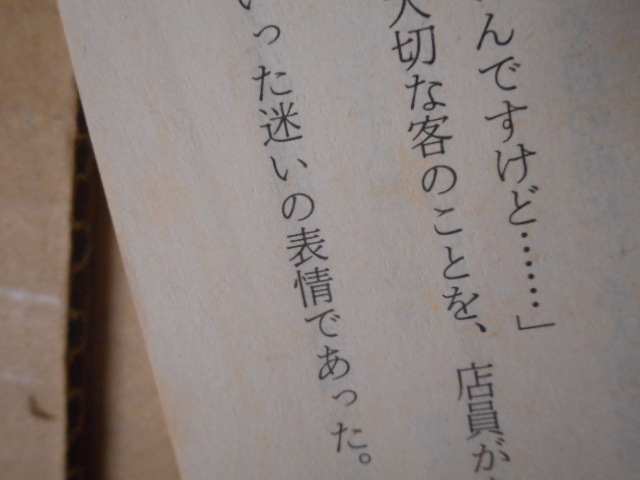 んですけど……」
大切な客のことを、店員が
いった迷いの表情であった。